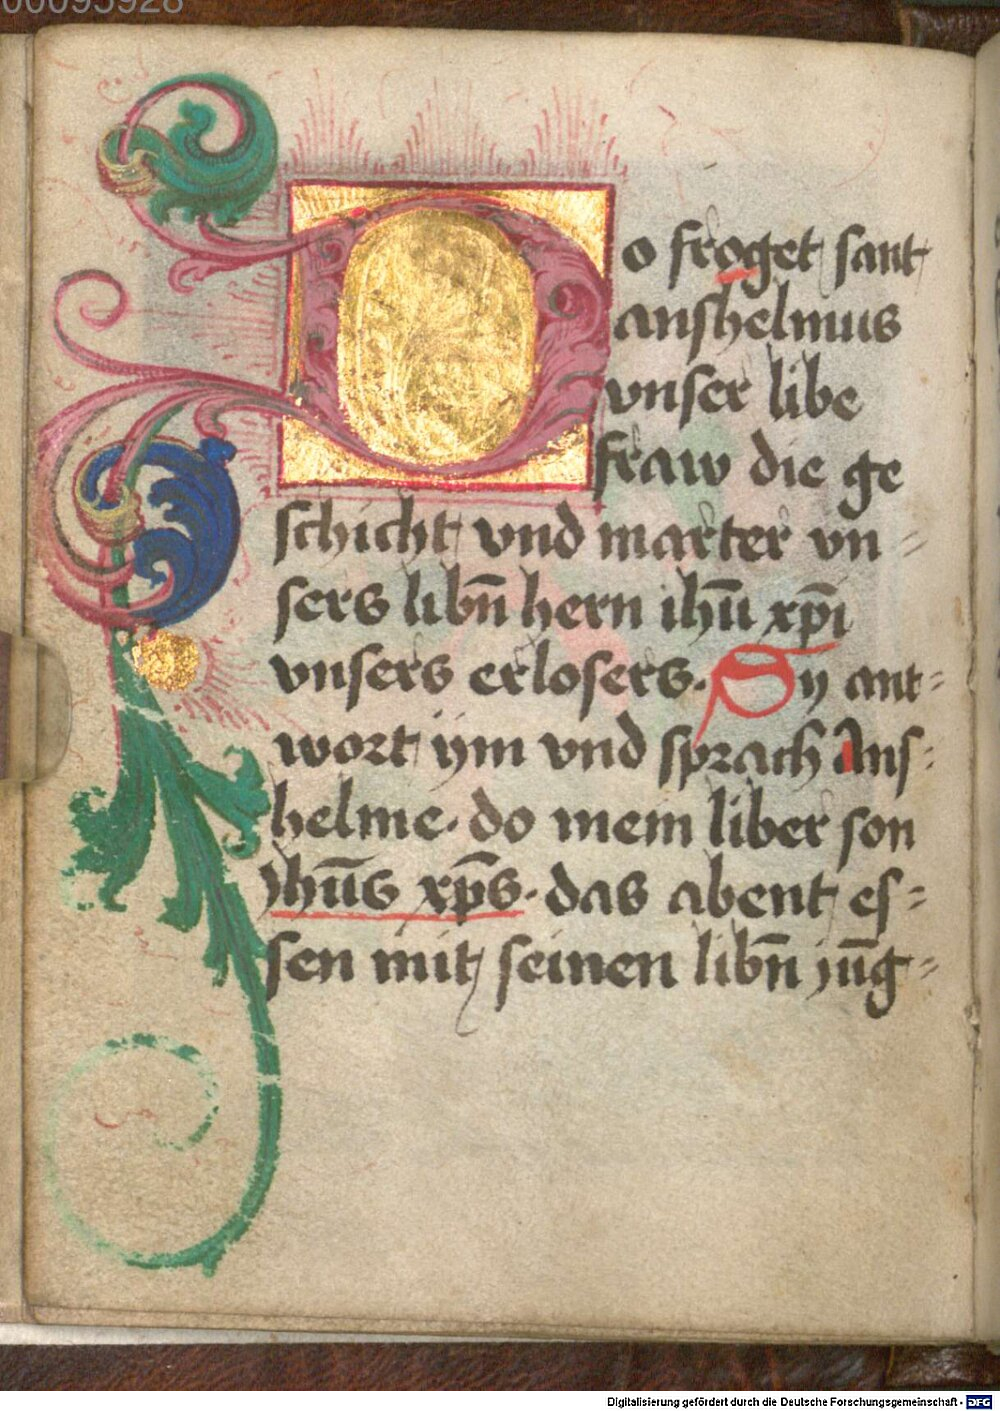 00095928
Do froget sant
anshelmus
vnser libe
fraw die ge
schicht vnd marter vn=
sers libn̄ hern ihu̅ xp̅i
vnsers erlosers. Sy ant=
wort ym vnd sprach Ans=
helme. do mein liber son
Jhu̅s xp̅s. das abent es=
sen mit seinen libn̄ iu̅g=
Digitalisierung gefördert durch die Deutsche Forschungsgemeinschaft - DFG